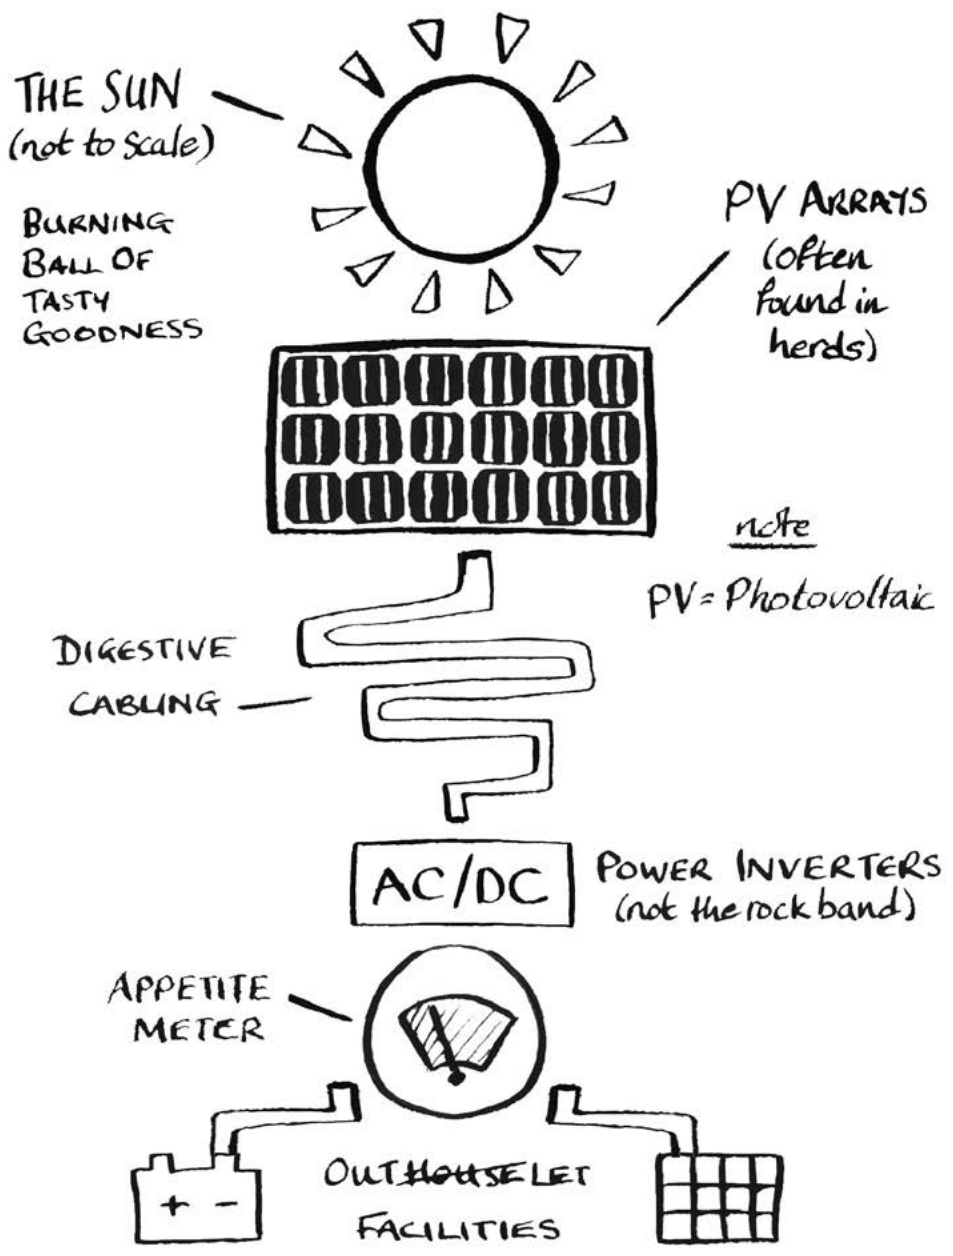 THE SUN
(not to scale)
BURNING
BALL OF
TASTY
GOODNESS
PV ARRAYS
(often
found in
herds)
note
PV = Photovoltaic
DIGESTIVE
CABLING
AC/DC
POWER INVERTERS
(not the rock band)
APPETITE
METER
+ -
OUTHOUSELET
FACILITIES